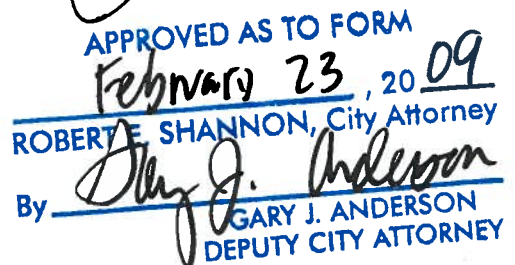 APPROVED AS TO FORM
February 23, 20 09
ROBERT E. SHANNON, City Attorney
By Gary J. Anderson
GARY J. ANDERSON
DEPUTY CITY ATTORNEY